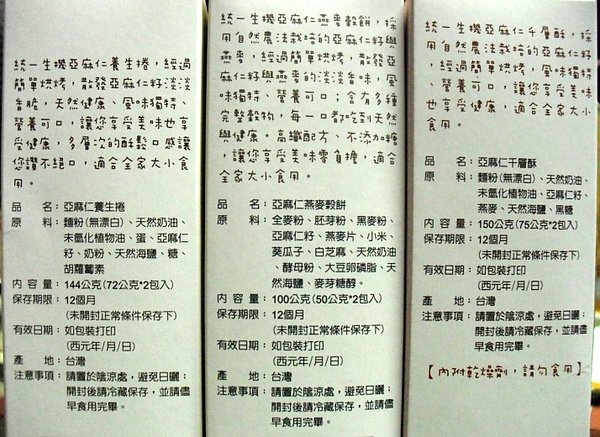 統一生機亞麻仁養生捲，經過
簡單烘烤，散發亞麻仁籽淡淡
香脆，天然健康、風味獨特、
營養可口，讓您享受美味也享
受健康，多層次的酥鬆口感讓
您讚不絕口，適合全家大小食
用。
品　　名：亞麻仁養生捲
原　　料：麵粉(無漂白)、天然奶油、
未氫化植物油、蛋、亞麻仁
籽、奶粉、天然海鹽、糖、
胡蘿蔔素
內 容 量：144公克(72公克*2包入)
保存期限：12個月
(未開封正常條件保存下)
有效日期：如包裝打印
(西元年/月/日)
產　　地：台灣
注意事項：請置於陰涼處，避免日曬；
開封後請冷藏保存，並請儘
早食用完畢。
統一生機亞麻仁燕麥穀餅，採
用自然農法栽培的亞麻仁籽與
燕麥，經過簡單烘烤，散發亞
麻仁籽與燕麥的淡淡香味，風
味獨特、營養可口；含有多種
完整穀物，每一口都吃到天然
與健康。高纖配方、不添加糖
，讓您享受美味零負擔，適合
全家大小食用。
品　　名：亞麻仁燕麥穀餅
原　　料：全麥粉、胚芽粉、黑麥粉、
亞麻仁籽、燕麥片、小米、
葵瓜子、白芝麻、天然奶油
、酵母粉、大豆卵磷脂、天
然海鹽、麥芽糖醇。
內 容 量：100公克(50公克*2包入)
保存期限：12個月
(未開封正常條件保存下)
有效日期：如包裝打印
(西元年/月/日)
產　　地：台灣
注意事項：請置於陰涼處，避免日曬；
開封後請冷藏保存，並請儘
早食用完畢。
統一生機亞麻仁千層酥，採
用自然農法栽培的亞麻仁籽
，經過簡單烘烤，風味獨特
、營養可口，讓您享受美味
也享受健康，適合全家大小
食用。
品　　名：亞麻仁千層酥
原　　料：麵粉(無漂白)、天然奶油、
未氫化植物油、亞麻仁籽、
燕麥、天然海鹽、黑糖
內 容 量：150公克(75公克*2包入)
保存期限：12個月
(未開封正常條件保存下)
有效日期：如包裝打印
(西元年/月/日)
產　　地：台灣
注意事項：請置於陰涼處，避免日曬；
開封後請冷藏保存，並請儘
早食用完畢。
【內附乾燥劑，請勿食用】